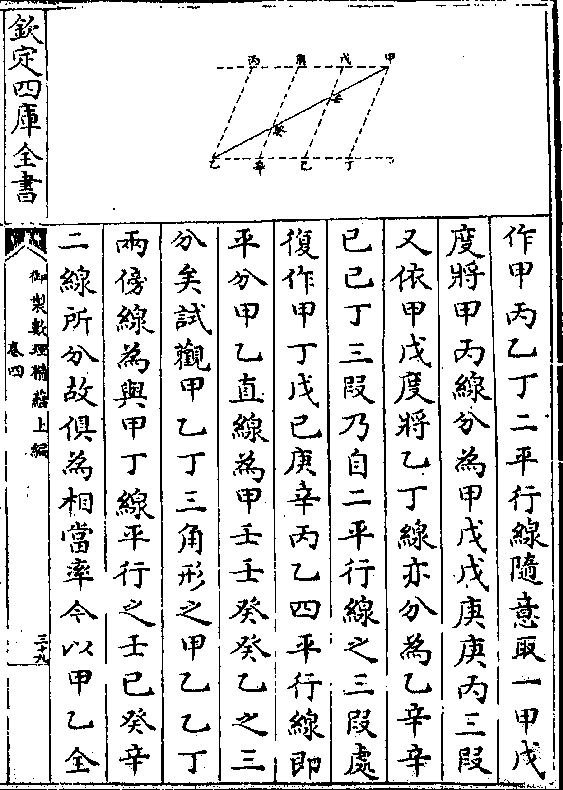 丙 庚 戊 甲
壬
癸
乙 辛 己 丁
作甲丙乙丁二平行線隨意取一甲戊
度將甲丙線分為甲戊戊庚庚丙三叚
又依甲戊度將乙丁線亦分為乙辛辛
己己丁三叚乃自二平行線之三叚處
復作甲丁戊己庚辛丙乙四平行線即
平分甲乙直線為甲壬壬癸癸乙之三
分矣試觀甲乙丁三角形之甲乙乙丁
兩傍線為與甲丁線平行之壬己癸辛
二線所分故俱為相當率今以甲乙全
欽定四庫全書
御製數理精蘊上編
卷四
三十九